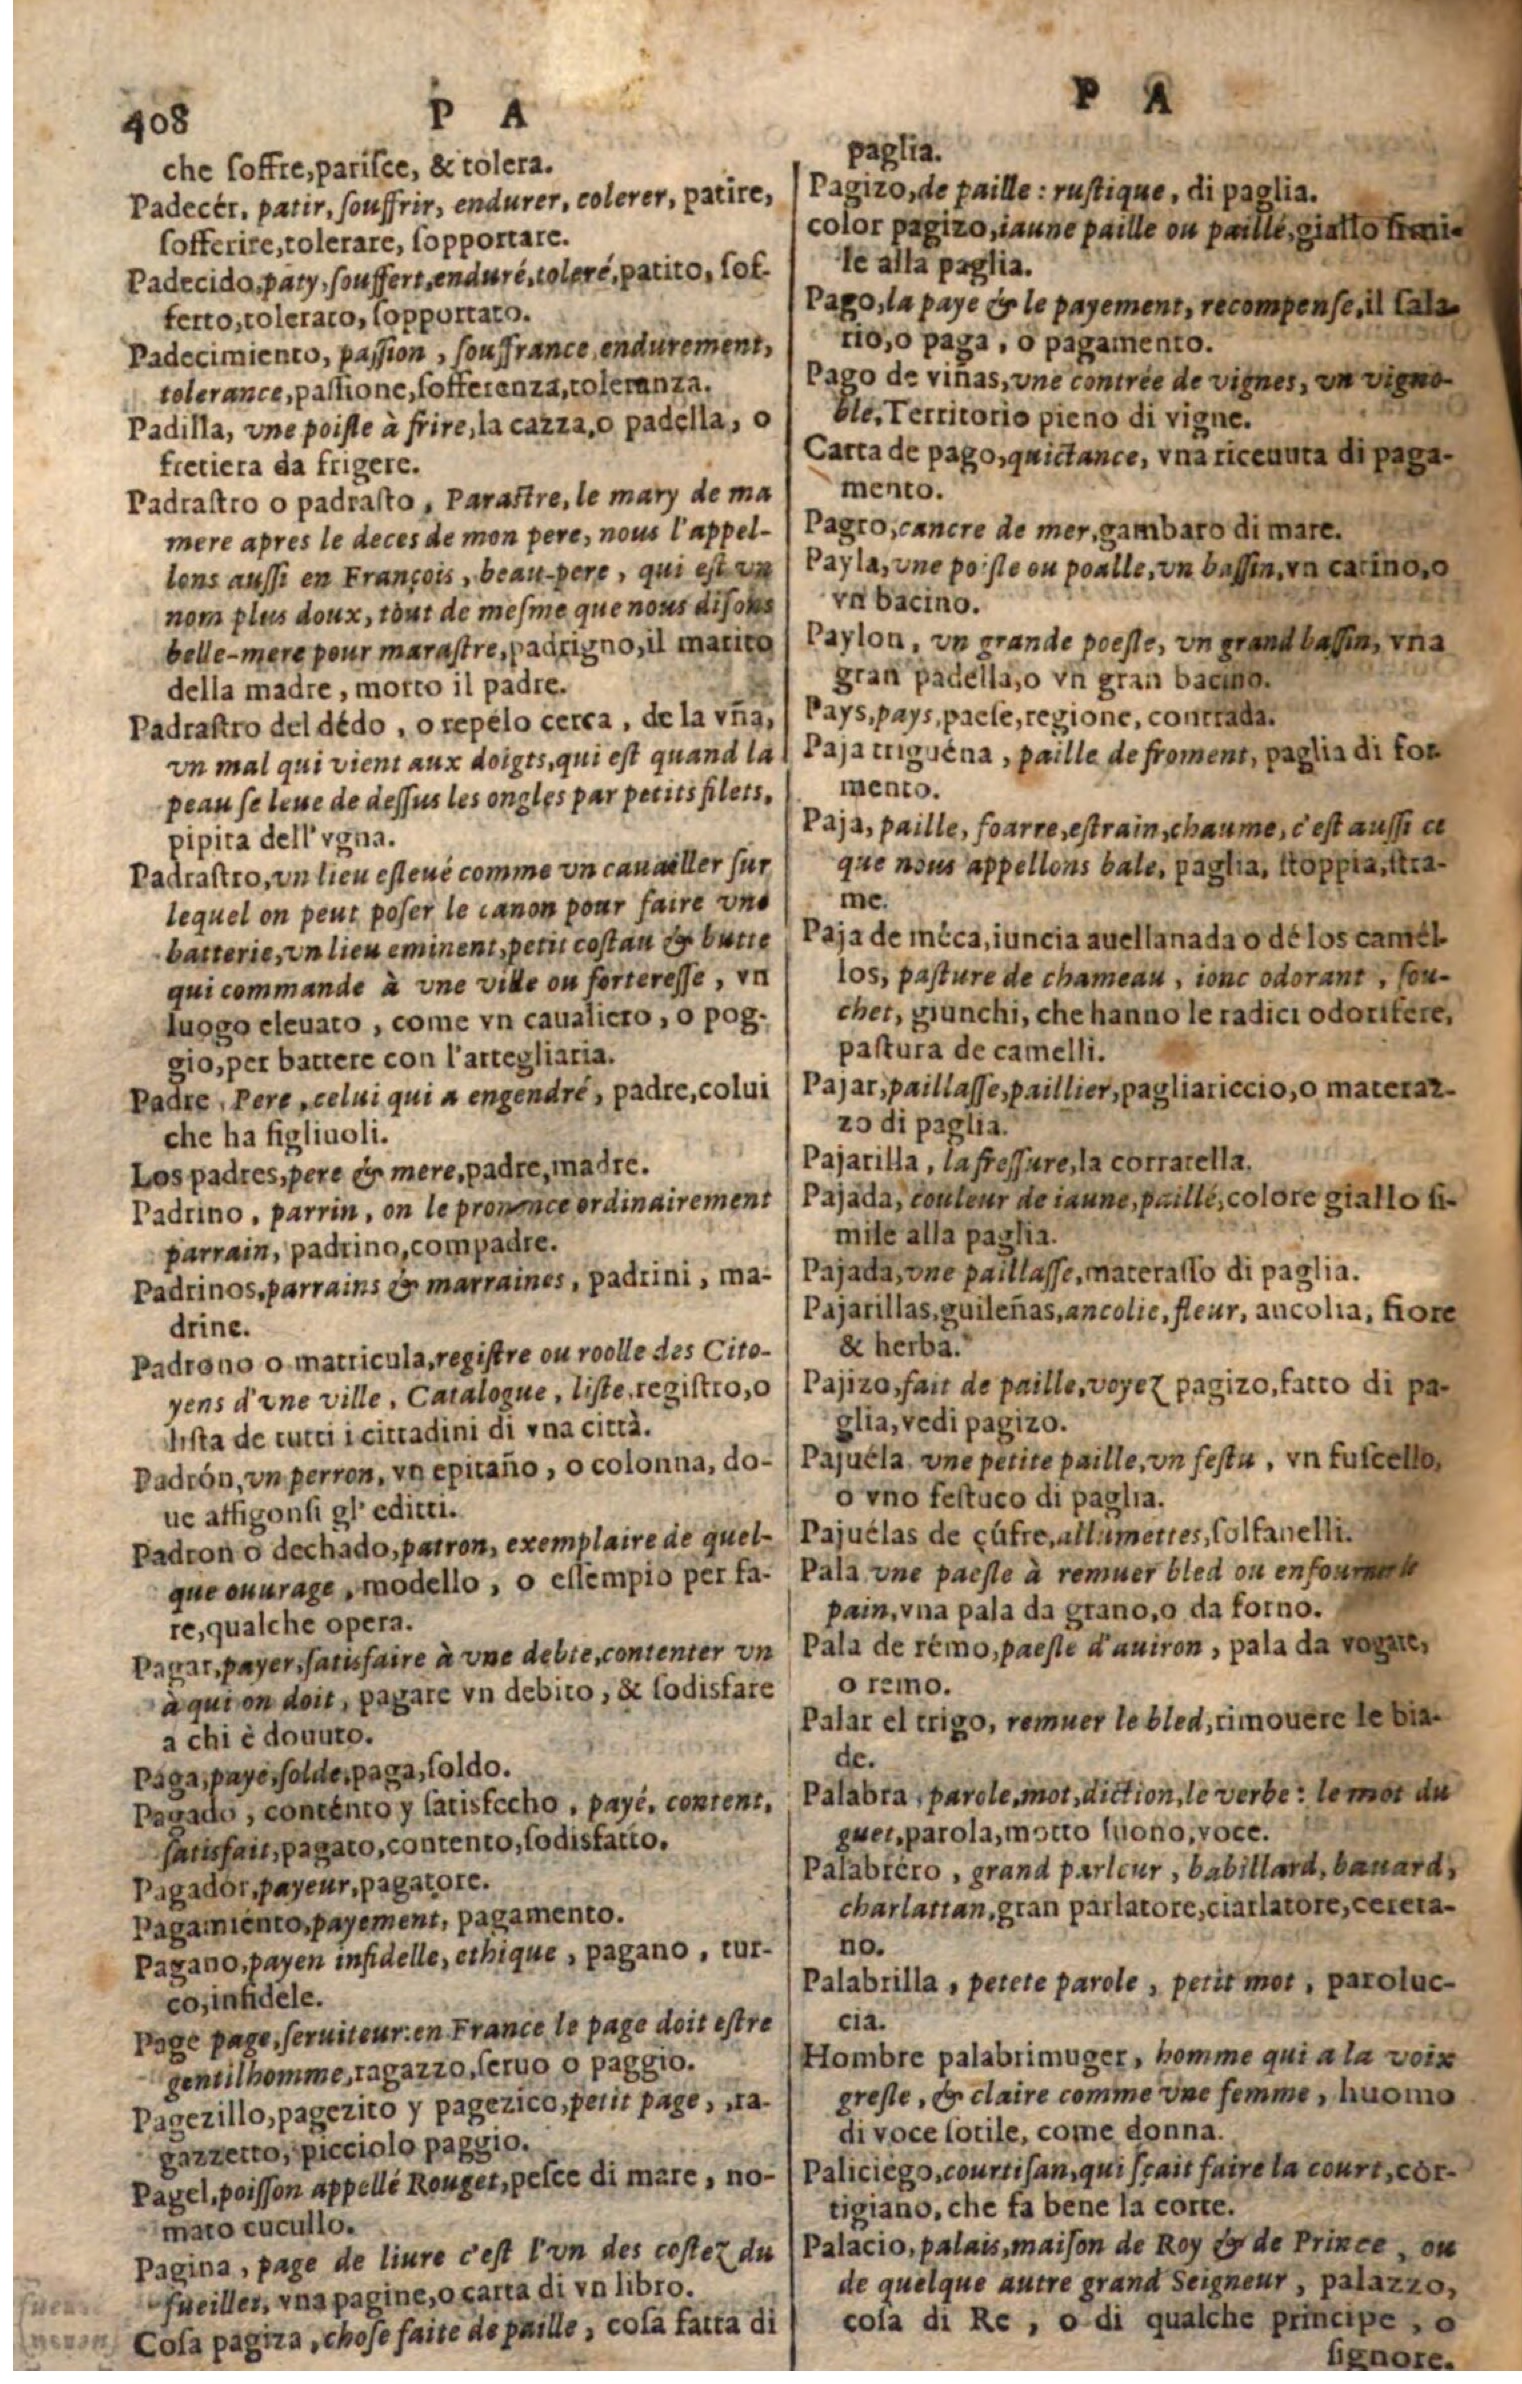 408 P A
che soffre, parisce, & tolera.
Padecér, patir, souffrir, endurer, tolerer, patire,
sofferire, tolerare, sopportare.
Padecido, paty, souffert, enduré, toleré, patito, sof-
ferto, tolerato, sopportato.
Padecimiento, passion, souffrance, endurement,
tolerance, passione, sofferenza, toleranza.
Padilla, vne poisle à frire, la cazza, o padella, o
fretiera da frigere.
Padrastro o padrasto, Parastre, le mary de ma
mere apres le deces de mon pere, nous l'appel-
lons aussi en François, beau-pere, qui est vn
nom plus doux, tout de mesme que nous disons
belle-mere pour marastre, padrigno, il marito
della madre, morto il padre.
Padrastro del dédo, o repélo cerca, de la vña,
vn mal qui vient aux doigts, qui est quand la
peau se leue de dessus les ongles par petits filets,
pipita dell' vgna.
Padrastro, vn lieu esleué comme vn cauailler sur
lequel on peut poser le canon pour faire vne
batterie, vn lieu eminent, petit costau & butte
qui commande à vne ville ou forteresse, vn
luogo eleuato, come vn caualiero, o pog-
gio, per battere con l'artegliaria.
Padre, Pere, celui qui a engendré, padre, colui
che ha figliuoli.
Los padres, pere & mere, padre, madre.
Padrino, parrin, on le prononce ordinairement
parrain, padrino, compadre.
Padrinos, parrains & marraines, padrini, ma-
drine.
Padrono o matricula, registre ou roolle des Cito-
yens d'vne ville, Catalogue, liste, registro, o
lista de tutti i cittadini di vna città.
Padrón, vn perron, vn epitaño, o colonna, do-
ue affigonsi gl' editti.
Padron o dechado, patron, exemplaire de quel-
que ouurage, modello, o essempio per fa-
re, qualche opera.
Pagar, payer, satisfaire à vne debte, contenter vn
à qui on doit, pagare vn debito, & sodisfare
a chi è douuto.
Paga, paye, solde, paga, soldo.
Pagado, conténto y satisfecho, payé, content,
satisfait, pagato, contento, sodisfatto.
Pagador, payeur, pagatore.
Pagamiénto, payement, pagamento.
Pagano, payen infidelle, ethique, pagano, tur-
co, infidele.
Page page, seruiteur: en France le page doit estre
gentilhomme, ragazzo, seruo o paggio.
Pagezillo, pagezito y pagezico, petit page, , ra-
gazzetto, picciolo paggio.
Pagel, poisson appellé Rouget, pesce di mare, no-
mato cucullo.
Pagina, page de liure c'est l'vn des costez du
fueillet, vna pagine, o carta di vn libro.
Cosa pagiza, chose faite de paille, cosa fatta di
P A
paglia.
Pagizo, de paille: rustique, di paglia.
color pagizo, iaune paille ou paillé, giallo simi-
le alla paglia.
Pago, la paye & le payement, recompense, il sala-
rio, o paga, o pagamento.
Pago de viñas, vne contrée de vignes, vn vigno-
ble, Territorio pieno di vigne.
Carta de pago, quictance, vna riceuuta di paga-
mento.
Pagro, cancre de mer, gambaro di mare.
Payla, vne poisle ou poalle, vn bassin, vn catino, o
vn bacino.
Paylon, vn grande poesle, vn grand bassin, vna
gran padella, o vn gran bacino.
Pays, pays, paese, regione, contrada.
Paja triguéna, paille de froment, paglia di for-
mento.
Paja, paille, foarre, estrain, chaume, c'est aussi ce
que nous appellons bale, paglia, stoppia, stra-
me.
Paja de méca, iuncia auellanada o dé los camél-
los, pasture de chameau, ionc odorant, sou-
chet, giunchi, che hanno le radici odorifere,
pastura de camelli.
Pajar, paillasse, paillier, pagliariccio, o materaz-
zo di paglia.
Pajarilla, la fressure, la corratella.
Pajada, couleur de iaune, paillé, colore giallo si-
mile alla paglia.
Pajada, vne paillasse, materasso di paglia.
Pajarillas, guileñas, ancolie, fleur, ancolia, fiore
& herba.
Pajizo, fait de paille, voyez pagizo, fatto di pa-
glia, vedi pagizo.
Pajuéla, vne petite paille, vn festu, vn fuscello,
o vno festuco di paglia.
Pajuélas de çúfre, allumettes, solfanelli.
Pala vne paesle à remuer bled ou enfourner le
pain, vna pala da grano, o da forno.
Pala de rémo, paesle d'auiron, pala da vogare,
o remo.
Palar el trigo, remuer le bled, rimouere le bia-
de.
Palabra, parole, mot, diction, le verbe: le mot du
guet, parola, motto suono, voce.
Palabréro, grand parleur, babillard, bauard,
charlattan, gran parlatore, ciarlatore, cereta-
no.
Palabrilla, petete parole, petit mot, paroluc-
cia.
Hombre palabrimuger, homme qui a la voix
gresle, & claire comme vne femme, huomo
di voce sotile, come donna.
Paliciégo, courtisan, qui sçait faire la court, cor-
tigiano, che fa bene la corte.
Palacio, palais, maison de Roy & de Prince, ou
de quelque autre grand Seigneur, palazzo,
cosa di Re, o di qualche principe, o
signore.